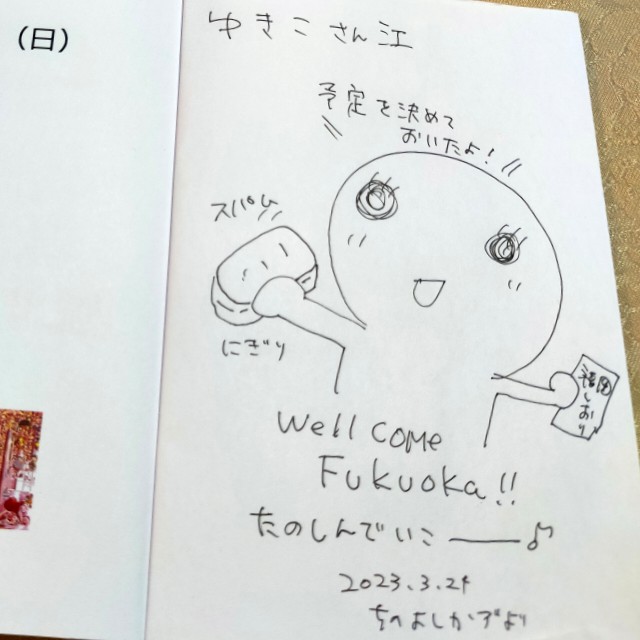 (日)
ゆきこさん江
予定を決めて
おいたよ!
スパム
にぎり
福岡
しおり
Well come
Fukuoka!!
たのしんでいこ――♪
2023.3.24